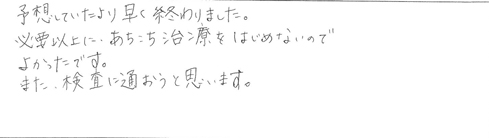 予想していたより早く終わりました。
必要以上に、あちこち治療をはじめないので
よかったです。
また、検査に通おうと思います。